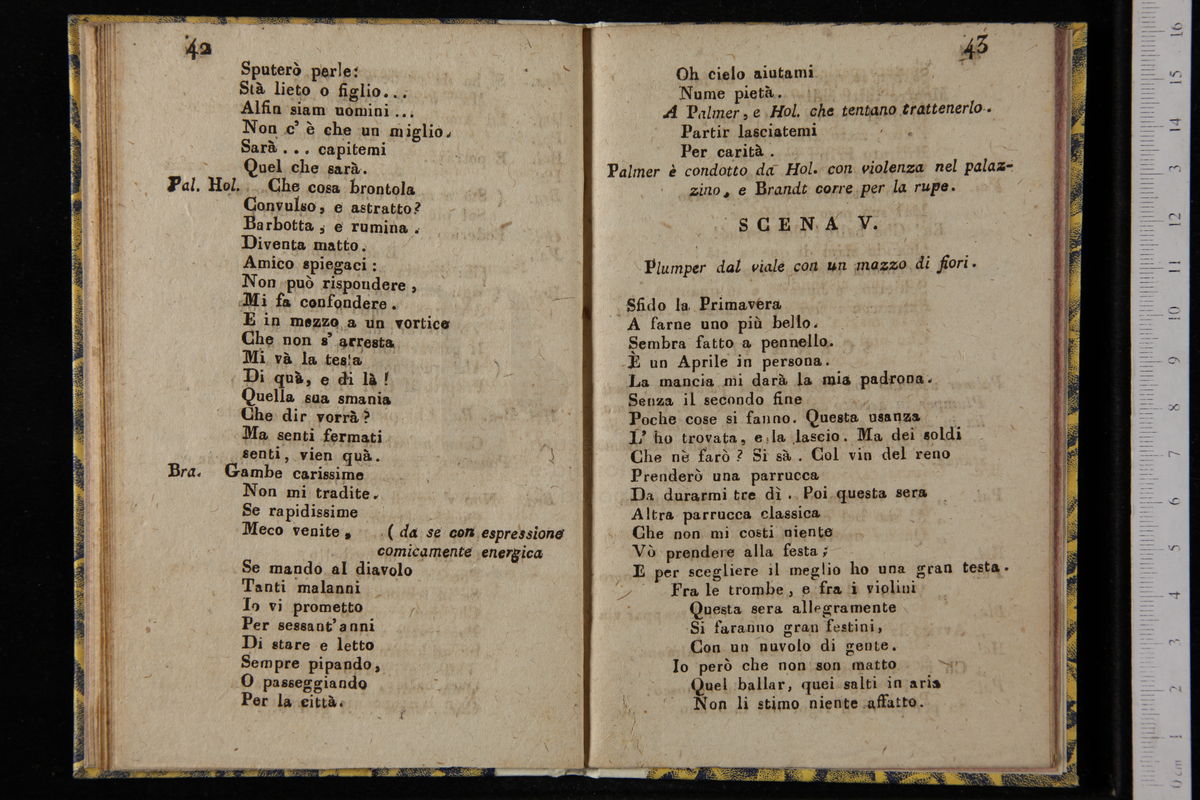 42
Sputerò perle:
Stà lieto o figlio...
Alfin siam uomini...
Non c' è che un miglio.
Sarà... capitemi
Quel che sarà.
Pal. Hol. Che cosa brontola
Convulso, e astratto?
Barbotta, e rumina.
Diventa matto.
Amico spiegaci:
Non può rispondere,
Mi fa confondere.
E in mezzo a un vortice
Che non s' arresta
Mi và la testa
Di quà, e di là!
Quella sua smania
Che dir vorrà?
Ma senti fermati
senti, vien quà.
Bra. Gambe carissime
Non mi tradite.
Se rapidissime
Meco venite, (da se con espressione
comicamente energica
Se mando al diavolo
Tanti malanni
Io vi prometto
Per sessant' anni
Di stare e letto
Sempre pipando,
O passeggiando
Per la città.
43
Oh cielo aiutami
Nume pietà.
A Palmer, e Hol. che tentano trattenerlo.
Partir lasciatemi
Per carità.
Palmer è condotto da Hol. con violenza nel palaz-
zino, e Brandt corre per la rupe.
SCENA V.
Plumper dal viale con un mazzo di fiori.
Sfido la Primavera
A farne uno più bello.
Sembra fatto a pennello.
È un Aprile in persona.
La mancia mi darà la mia padrona.
Senza il secondo fine
Poche cose si fanno. Questa usanza
L' ho trovata, e la lascio. Ma dei soldi
Che nè farò? Si sà. Col vin del reno
Prenderò una parrucca
Da durarmi tre dì. Poi questa sera
Altra parrucca classica
Che non mi costi niente
Vò prendere alla festa;
E per scegliere il meglio ho una gran testa.
Fra le trombe, e fra i violini
Questa sera allegramente
Si faranno gran festini,
Con un nuvolo di gente.
Io però che non son matto
Quel ballar, quei salti in aria
Non li stimo niente affatto.
0 cm 1 2 3 4 5 6 7 8 9 10 11 12 13 14 15 16